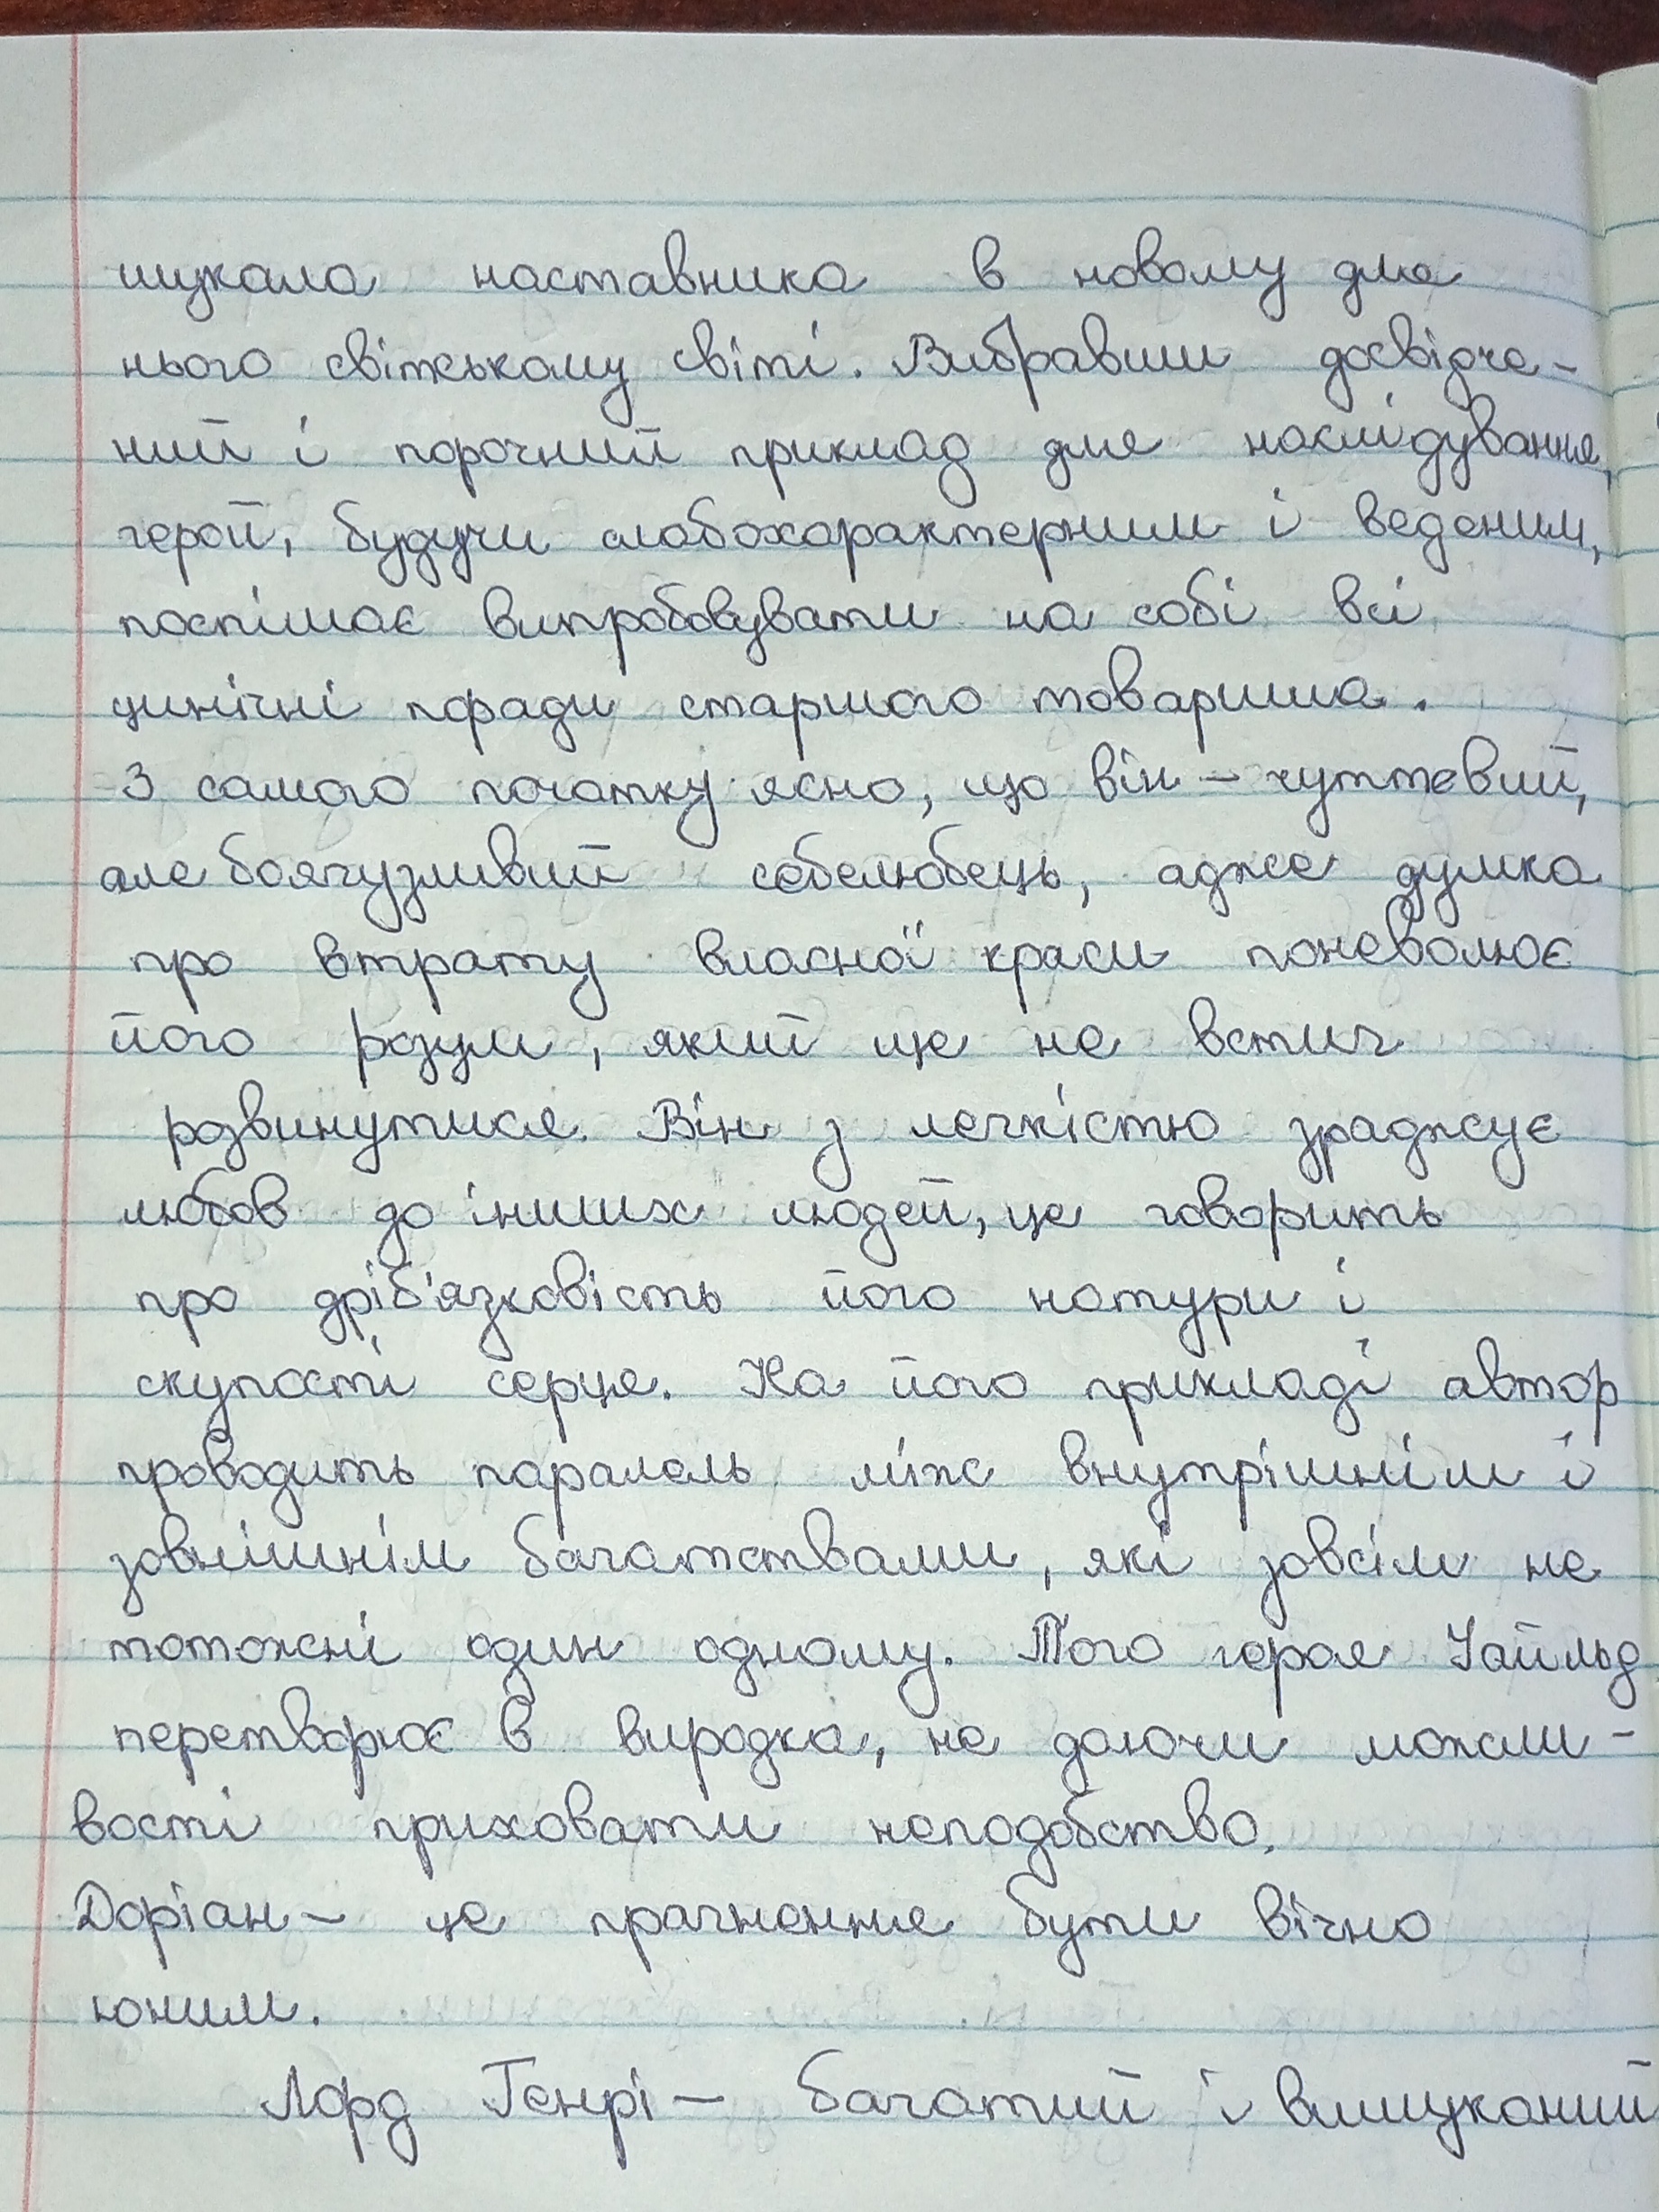 шукала наставника в новому для
нього світському світі. Вибравши досвідче-
ний і порочний приклад для наслідування,
герой, будучи слабохарактерним і веденим,
поспішає випробовувати на собі всі
цинічні поради старшого товариша.
З самого початку ясно, що він - чуттєвий,
але боягузливий себелюбець, адже думка
про втрату власної краси поневолює
його розум, який ще не встиг
розвинутися. Він з легкістю зраджує
любов до інших людей, це говорить
про дріб'язковість його натури і
скупості серця. На його прикладі автор
проводить паралель між внутрішнім і
зовнішнім багатствами, які зовсім не
тотожні один одному. Того героя Уайльд
перетворює в виродка, не даючи можли-
вості приховати неподобство.
Доріан - це прагнення бути вічно
юним.
Лорд Генрі - багатий і вишуканий